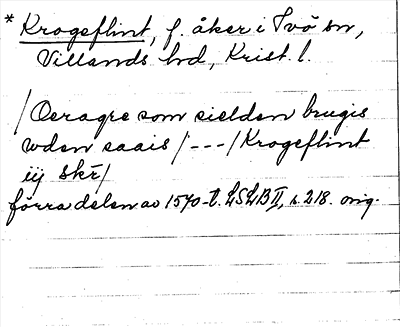 * Krogeflint, f. åker i Ivö sn,
Villands hd, Krist. l.
/Oeragre som sielden brugis
uden saais/---/Krogeflint
iij skr/
förra delen av 1570-t. LSLB II, s. 218. orig.